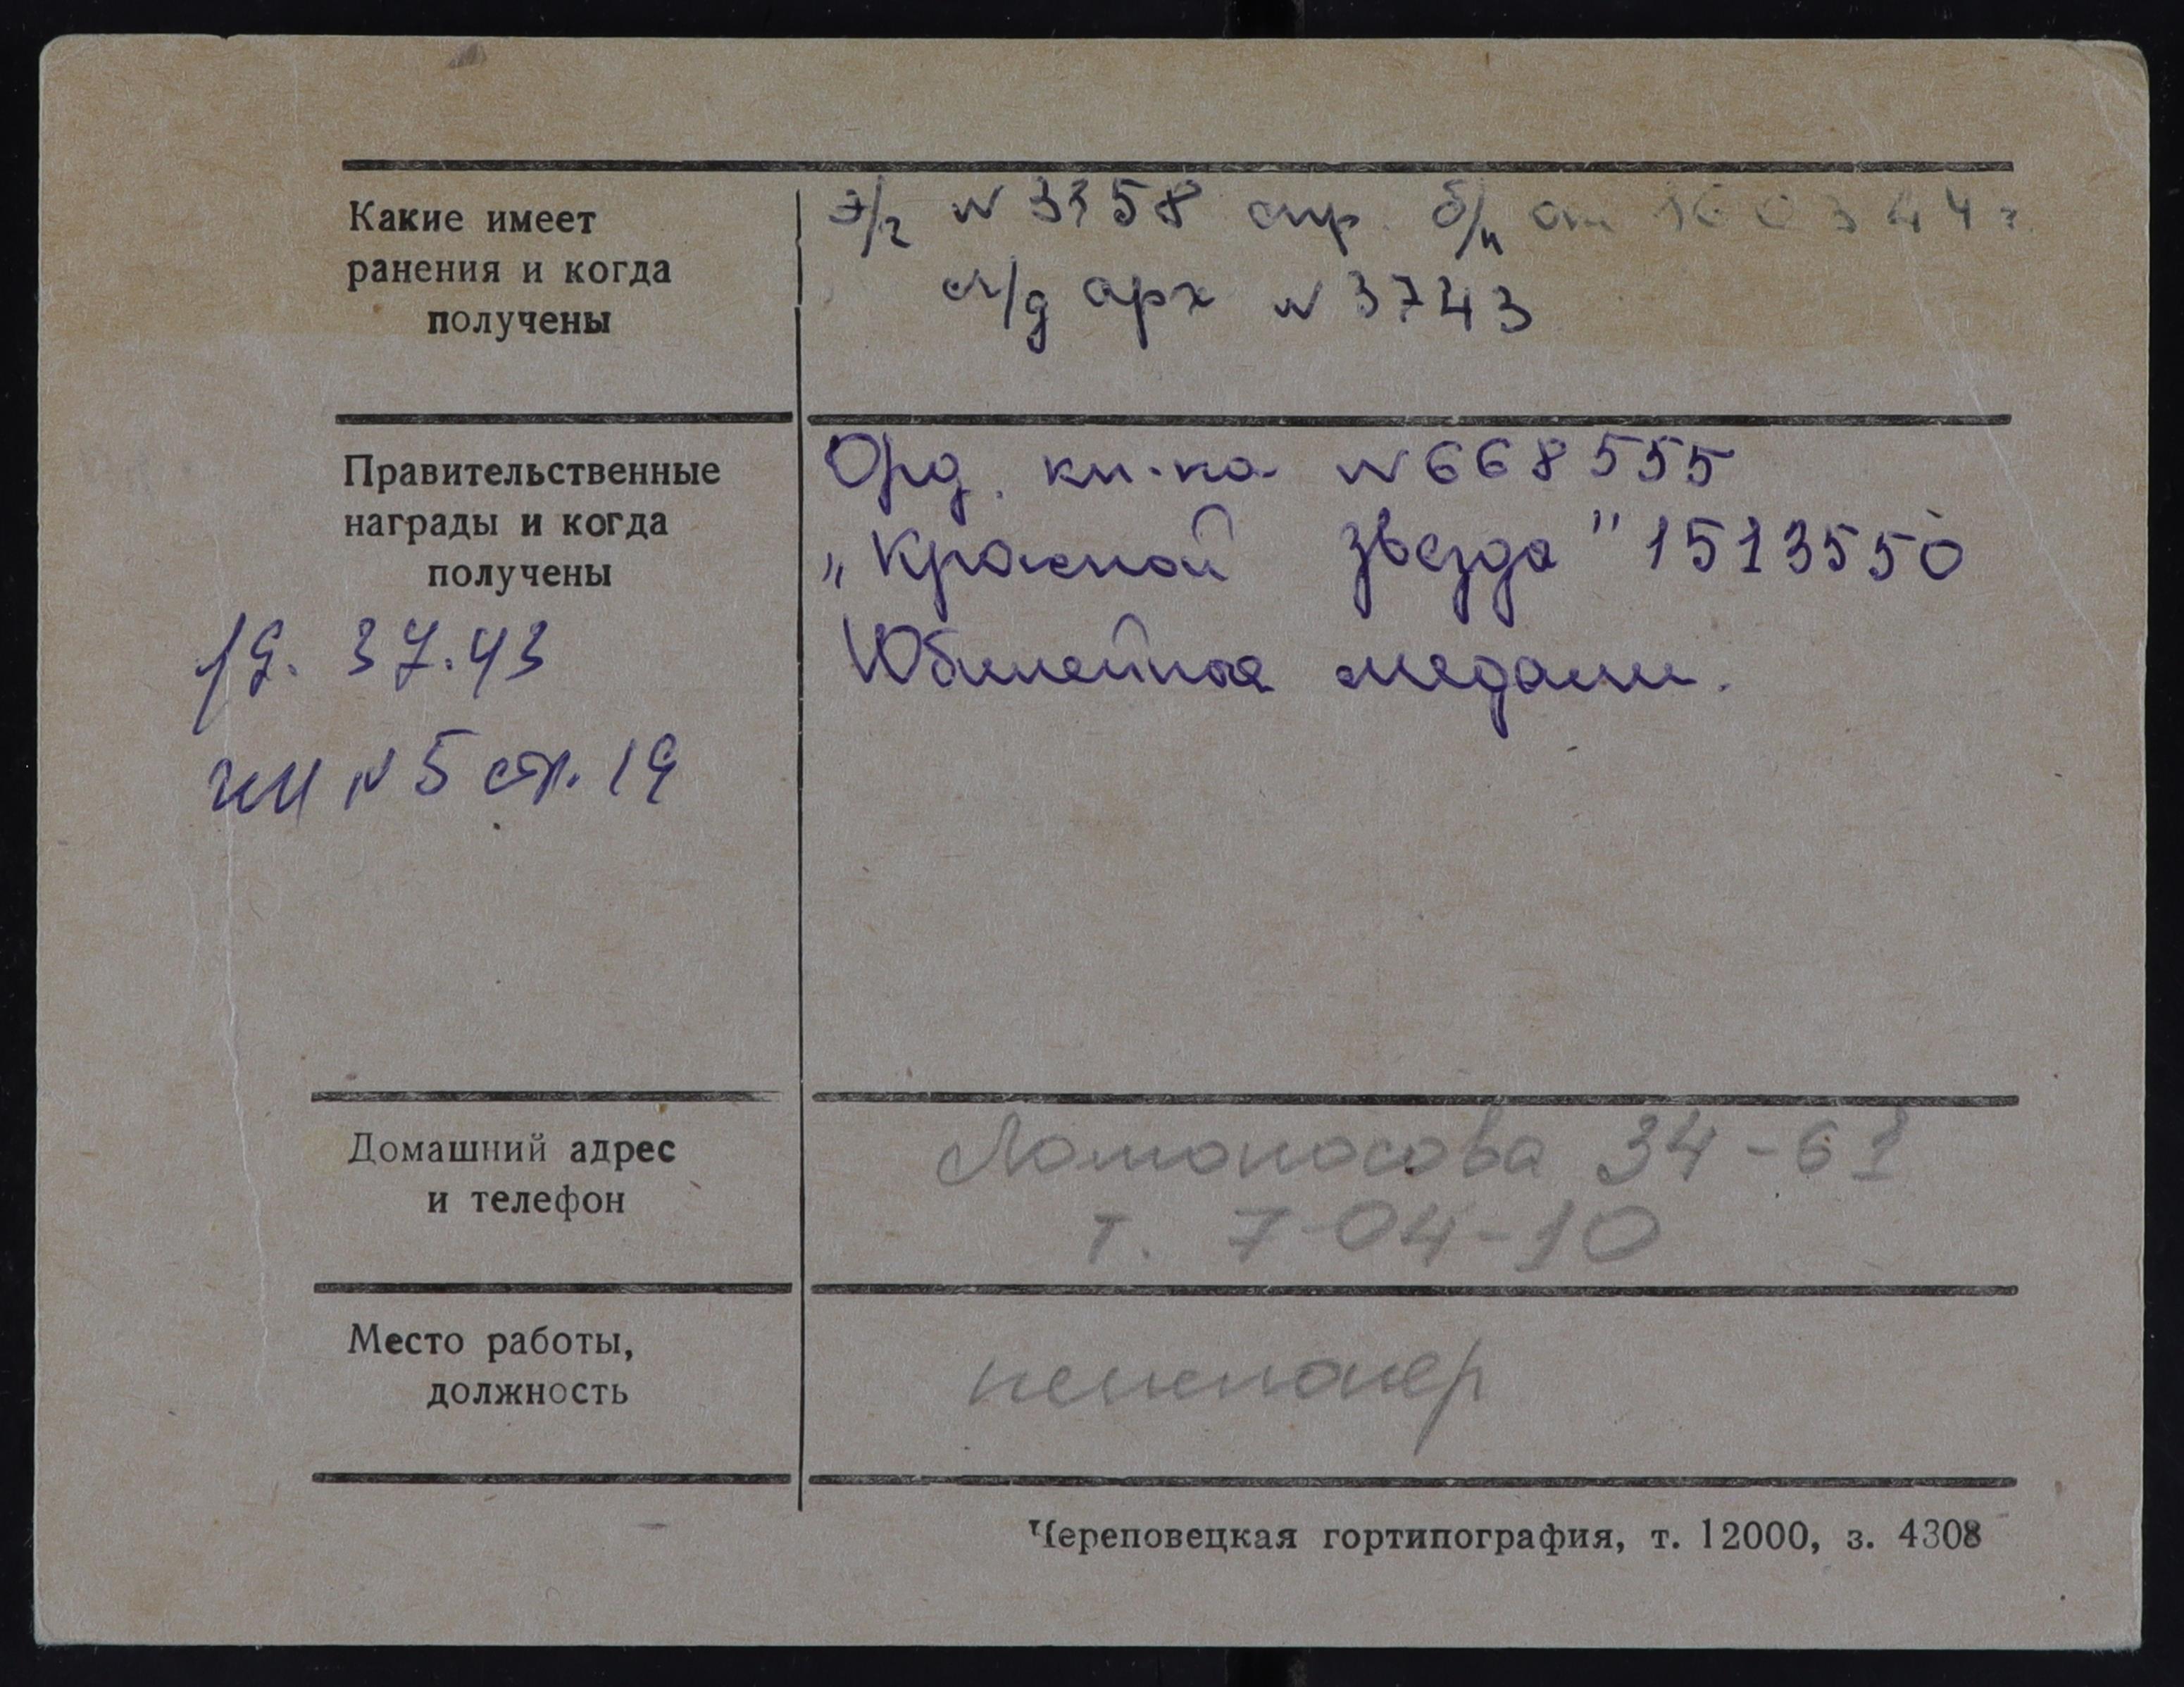 Какие имеет
ранения и когда
получены
э/г № 3358 спр. б/н от 160344г.
л/д арх № 3743
Правительственные
награды и когда
получены
Орд. кн-ка № 668555
„Красной звезда" 1513550
Юбилейные медали.
37.43
№ 5 стр. 19
Домашний адрес
и телефон
Ломоносова 34-61
т. 7-04-10
Место работы,
должность
пенсионер
Череповецкая гортипография, т. 12000, з. 4308